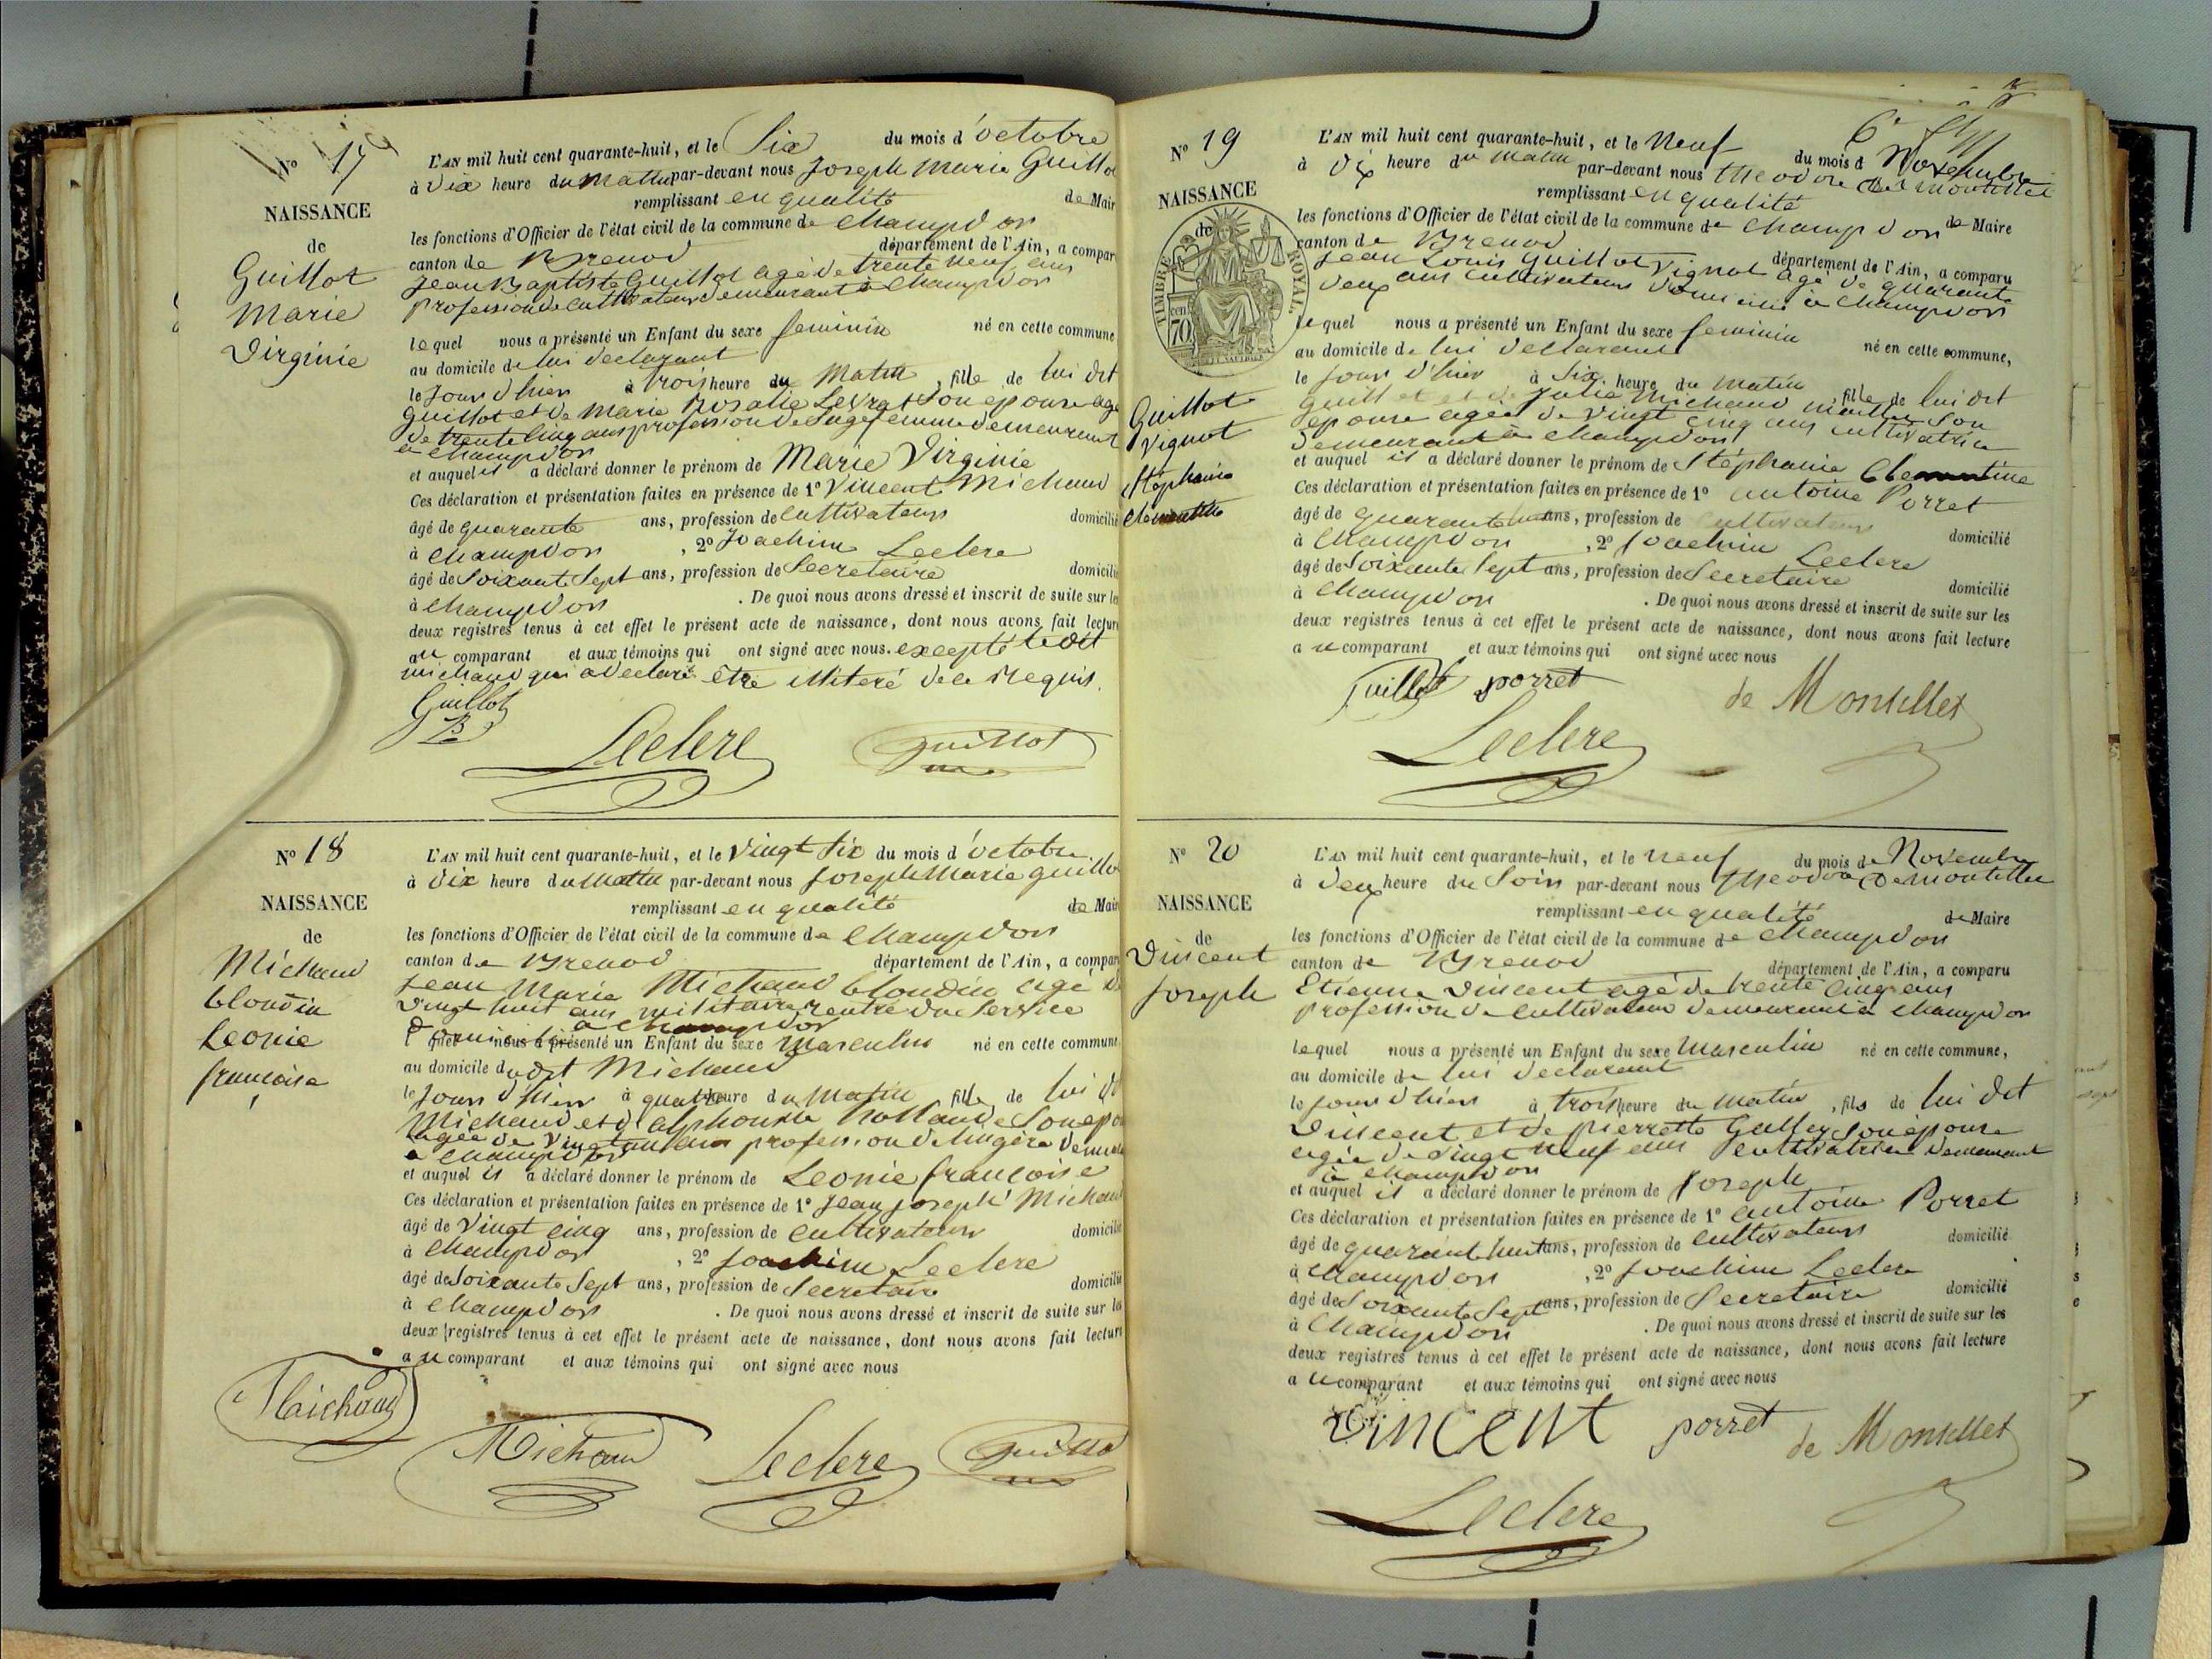 N° 17
NAISSANCE
de
Guillot
Marie
Virginie
L'AN mil huit cent quarante-huit, et le Six du mois d'octobre
à dix heure du Matin par-devant nous Joseph Marie Guillot
remplissant en qualité de Mair
les fonctions d'Officier de l'état civil de la commune de Champdor
canton de Brenod département de l'Ain, a compar
Jean Baptiste Guillot agé de trente neuf ans
profession de cultivateur demeurant à Champdor
lequel nous a présenté un Enfant du sexe feminin né en cette commune
au domicile de lui declarant
le Jour d'hier à trois heure du Matin, fille de lui dit
Guillot et de Marie Rosalie Levrat son épouse agé
de trente cinq ans profession de Sage femme demeurant
à Champdor
et auquel il a déclaré donner le prénom de Marie Virginie
Ces déclaration et présentation faites en présence de 1° Vincent Michaud
âgé de quarante ans, profession de cultivateur domicilié
à Champdor, 2° Joachim Leclere
âgé de Soixante Sept ans, profession de Secretaire domicilié
à Champdor. De quoi nous avons dressé et inscrit de suite sur les
deux registres tenus à cet effet le présent acte de naissance, dont nous avons fait lecture
au comparant et aux témoins qui ont signé avec nous. excepté ledit
michaud qui a declaré être illiteré de ce requis.
Guillot
JB
Leclere
Guillot
N° 18
NAISSANCE
de
Michaud
blondin
Leonie
françoise
L'AN mil huit cent quarante-huit, et le vingt six du mois d'octobre
à dix heure du Matin par-devant nous Joseph Marie guillo
remplissant en qualité de Mair
les fonctions d'Officier de l'état civil de la commune de Champdor
canton de Brenod département de l'Ain, a compar
Jean Marie Michaud blondin agé de
vingt huit ans militaire rentré du service
domicilié à Champdor
quel nous a présenté un Enfant du sexe Masculin né en cette commune
au domicile dudit Michaud
le Jour d'hier à quatre heure du Matin, fille de lui dit
Michaud et d'alphonsine Rolland Son epou
agée de vingt un ans profession de lingère demeu
à Champdor
et auquel il a déclaré donner le prénom de Leonie françoise
Ces déclaration et présentation faites en présence de 1° Jean Joseph Michaud
âgé de Vingt cinq ans, profession de cultivateur domicilié
à Champdor, 2° Joachim Leclere
âgé de Soixante Sept ans, profession de Secretaire domicilié
à Champdor. De quoi nous avons dressé et inscrit de suite sur les
deux registres tenus à cet effet le présent acte de naissance, dont nous avons fait lecture
au comparant et aux témoins qui ont signé avec nous
Michaud
Michaud
Leclere
Guillo
N° 19
NAISSANCE
de
TIMBRE ROYAL
70 cen
Guillot
Vignot
Stephanie
Clementine
L'AN mil huit cent quarante-huit, et le Neuf du mois d Novembre
à dix heure du Matin par-devant nous theodore de montillet
remplissant en qualité de Maire
les fonctions d'Officier de l'état civil de la commune de Champdor
canton de Brenod département de l'Ain, a comparu
Jean Louis Guillot Vignot agé de quarante
deux ans cultivateur domicilié à Champdor
lequel nous a présenté un Enfant du sexe feminin né en cette commune,
au domicile de lui declarant
le Jour d'hier à Six heure du Matin, fille de lui dit
Guillot et de Julie Michaud son
epouse agée de vingt cinq ans cultivatrice
demeurant à Champdor
et auquel il a déclaré donner le prénom de Stéphanie Clementine
Ces déclaration et présentation faites en présence de 1° antoine Porret
âgé de quarante huit ans, profession de cultivateur domicilié
à Champdor, 2° Joachim Leclere
âgé de Soixante Sept ans, profession de Secretaire domicilié
à Champdor. De quoi nous avons dressé et inscrit de suite sur les
deux registres tenus à cet effet le présent acte de naissance, dont nous avons fait lecture
au comparant et aux témoins qui ont signé avec nous
Guillot porret de Montillet
Leclere
N° 20
NAISSANCE
de
Vincent
Joseph
L'AN mil huit cent quarante-huit, et le neuf du mois de Novembre
à deux heure du Soir par-devant nous theodore de montillet
remplissant en qualité de Maire
les fonctions d'Officier de l'état civil de la commune de Champdor
canton de Brenod département de l'Ain, a comparu
Etienne Vincent agé de trente cinq ans
profession de cultivateur demeurant à Champdor
lequel nous a présenté un Enfant du sexe Masculin né en cette commune,
au domicile de lui declarant
le Jour d'hier à trois heure du Matin, fils de lui dit
Vincent et de pierrette Galley son épouse
agée de vingt neuf ans cultivatrice demeurant
à Champdor
et auquel il a déclaré donner le prénom de Joseph
Ces déclaration et présentation faites en présence de 1° antoine Porret
âgé de quarante huit ans, profession de cultivateur domicilié
à Champdor, 2° Joachim Leclere
âgé de Soixante Sept ans, profession de Secretaire domicilié
à Champdor. De quoi nous avons dressé et inscrit de suite sur les
deux registres tenus à cet effet le présent acte de naissance, dont nous avons fait lecture
au comparant et aux témoins qui ont signé avec nous
Vincent porret de Montillet
Leclere